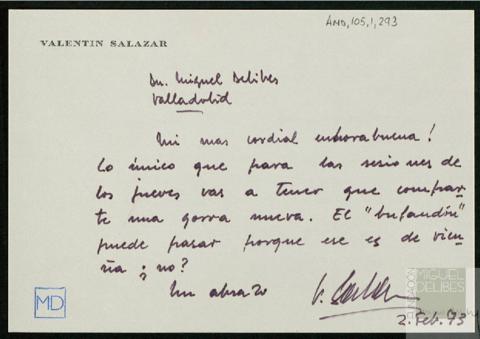 AMD,105,1,293
VALENTIN SALAZAR
Dn. Miguel Delibes
Valladolid
Mi mas cordial enhorabuena!
Lo único que para las sesiones de
los jueves vas a tener que comprar
te una gorra nueva. El "bufandín"
puede pasar porque ese es de vicu
ña ¿no?
Un abrazo
2. Feb. 93
MD
FUNDACIÓN
MIGUEL
DELIBES